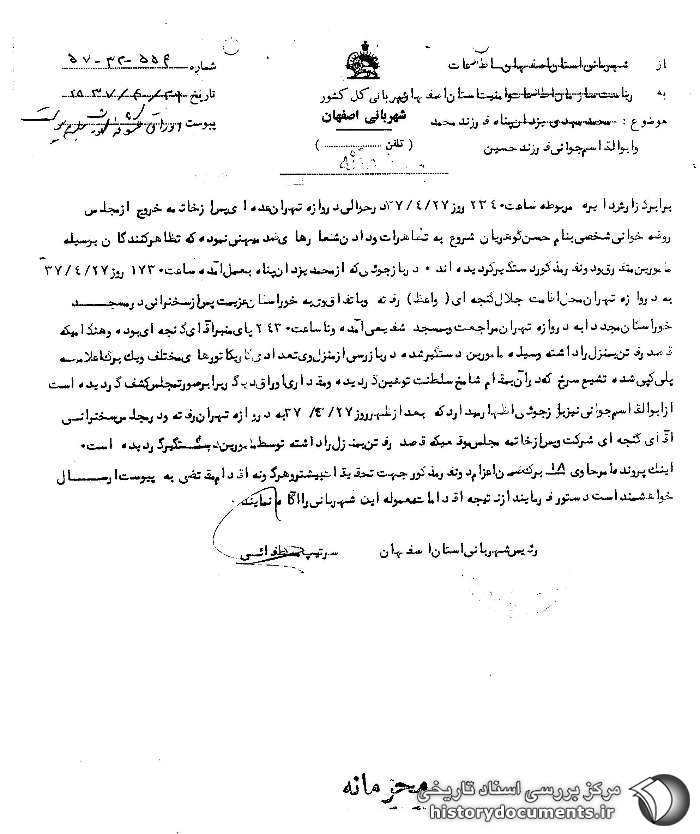 از شهربانی استان اصفهان اطلاعات
شماره ۵۵۶-۳۲-۵۷
به ریاست سازمان اطلاعات و امنیت استان اصفهان
شهربانی کل کشور
تاریخ
شهربانی اصفهان
موضوع: محمد مهدی یزدان پناه فرزند محمد
پیوست اوراق
و ابوالقاسم جوانی فرزند حسین
( تلفن )
برابر گزارش دایره مربوطه ساعت ۲۳۴۰ روز ۳۷/۴/۲۷ در حوالی دروازه تهران عده ای پس از خاتمه خروج از مجلس
روضه خوانی شخصی بنام حسن گوهریان شروع به تظاهرات و دادن شعارهای ضد میهنی نموده که تظاهرکنندگان بوسیله
مامورین متفرق و دو نفر مذکور دستگیر گردیده اند ۰ در بازجوئی که از محمد یزدان پناه بعمل آمده ساعت ۱۷۳۰ روز ۳۷/۴/۲۷
به دروازه تهران محل اقامت جلال گنجه ای (واعظ) رفته و باتفاق وی به خوراستان عزیمت پس از سخنرانی در مسجد
خوراستان مجددا به دروازه تهران مراجعت و بمسجد شفیعی آمده و تا ساعت ۲۴۳۰ پای منبر آقای گنجه ای بوده و هنگامیکه
قصد رفتن بمنزل را داشته وسیله مامورین دستگیر شده در بازرسی از منزل وی تعدادی کاریکاتورهای مختلف و یک برگ اعلامیه
پلی کپی شده تشیع سرخ که در آن بمقام شامخ سلطنت توهین گردیده و مقداری اوراق دیگر برابر صورتمجلس کشف گردیده است
از ابوالقاسم جوانی نیز بازجوئی اظهار میدارد که بعد از ظهر روز ۳۷/۴/۲۷ به دروازه تهران رفته و در مجلس سخنرانی
آقای گنجه ای شرکت و پس از خاتمه مجلس موقعیکه قصد رفتن بمنزل را داشته توسط مامورین دستگیر گردیده است۰
اینک پرونده امر حاوی ۱۸ برگ ضمن اعزام دو نفر مذکور جهت تحقیقات بیشتر و هرگونه اقدام مقتضی به پیوست ارسال
خواهشمند است دستور فرمایند از نتیجه اقدامات معموله این شهربانی را آگاه نمایند ۰
رئیس شهربانی استان اصفهان سرتیپ
محرمانه
مرکز بررسی اسناد تاریخی
historydocuments.ir